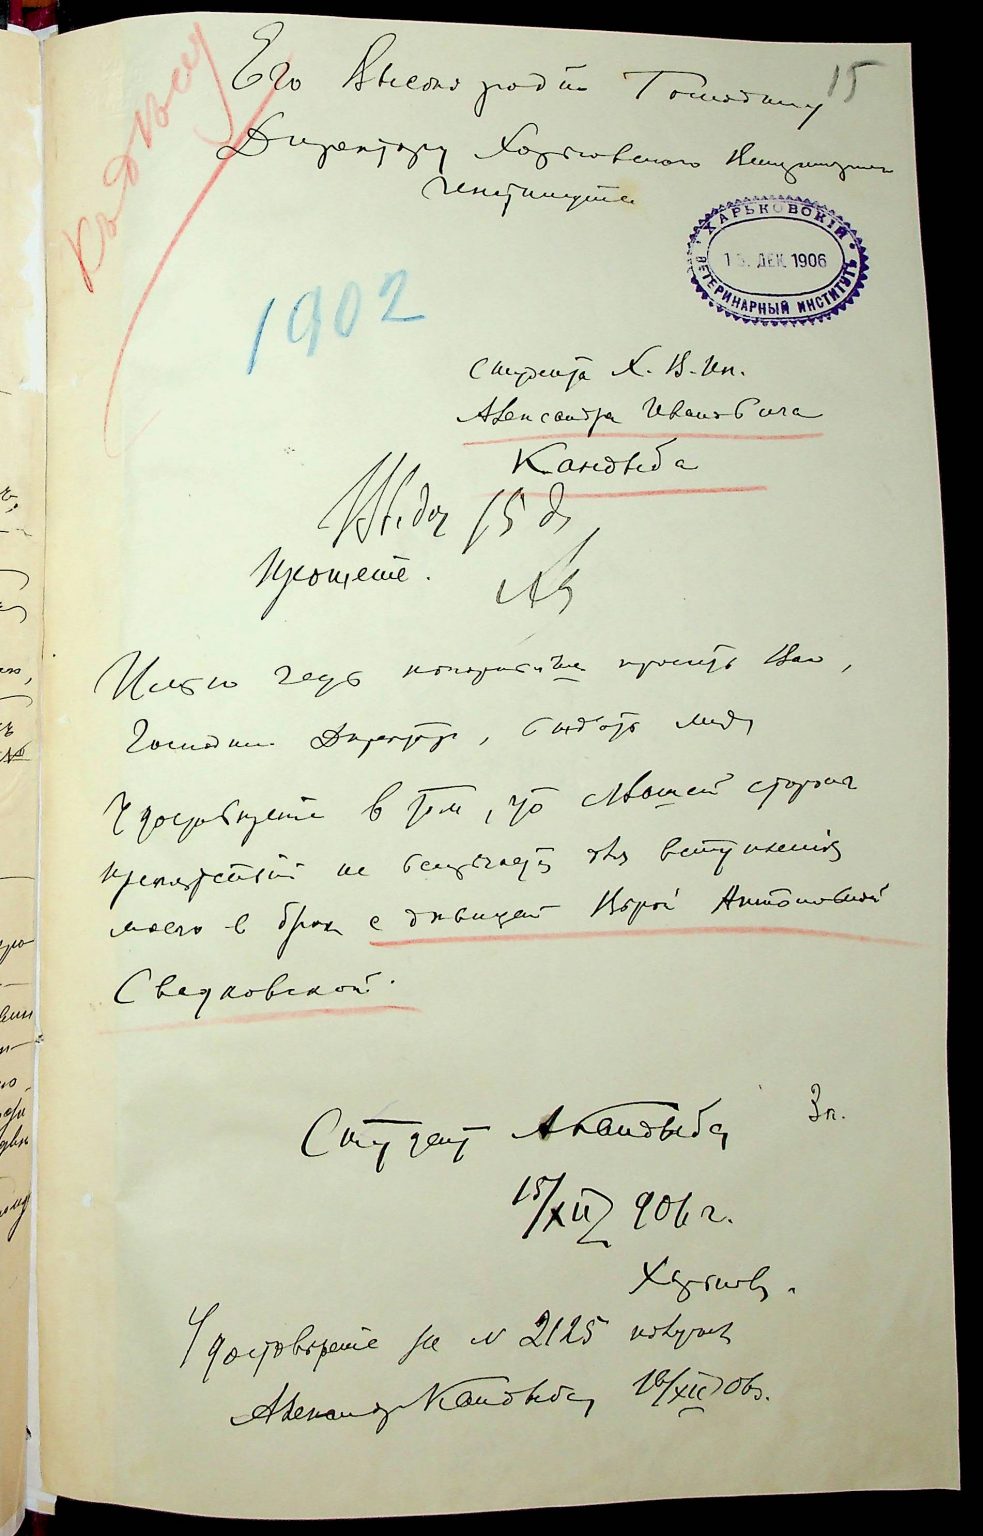 Къ дѣлу
15
Его Высокородію Господину
Директору Харьковскаго Ветеринарнаго
Института
ХАРЬКОВСКІЙ
15. ДЕК. 1906
ВЕТЕРИНАРНЫЙ ИНСТИТУТЪ
1902
студента Х. В. Ин.
Александра Ивановича
Кандыба
15 д
Прошеніе.
Имѣю честь покорнѣйше просить Вас,
Господин Директор, выдать мнѣ
Удостовѣреніе в том, что с Вашей стороны
препятствій не встрѣчается для вступленія
моего в брак с дѣвицей Вѣрой Антоновной
Свадковской.
Студент А Кандыба
Зп.
15/XII 906 г.
Харьков.
Удостовѣреніе за N 2125 получил
Александр Кандыба 18/XII 06г.